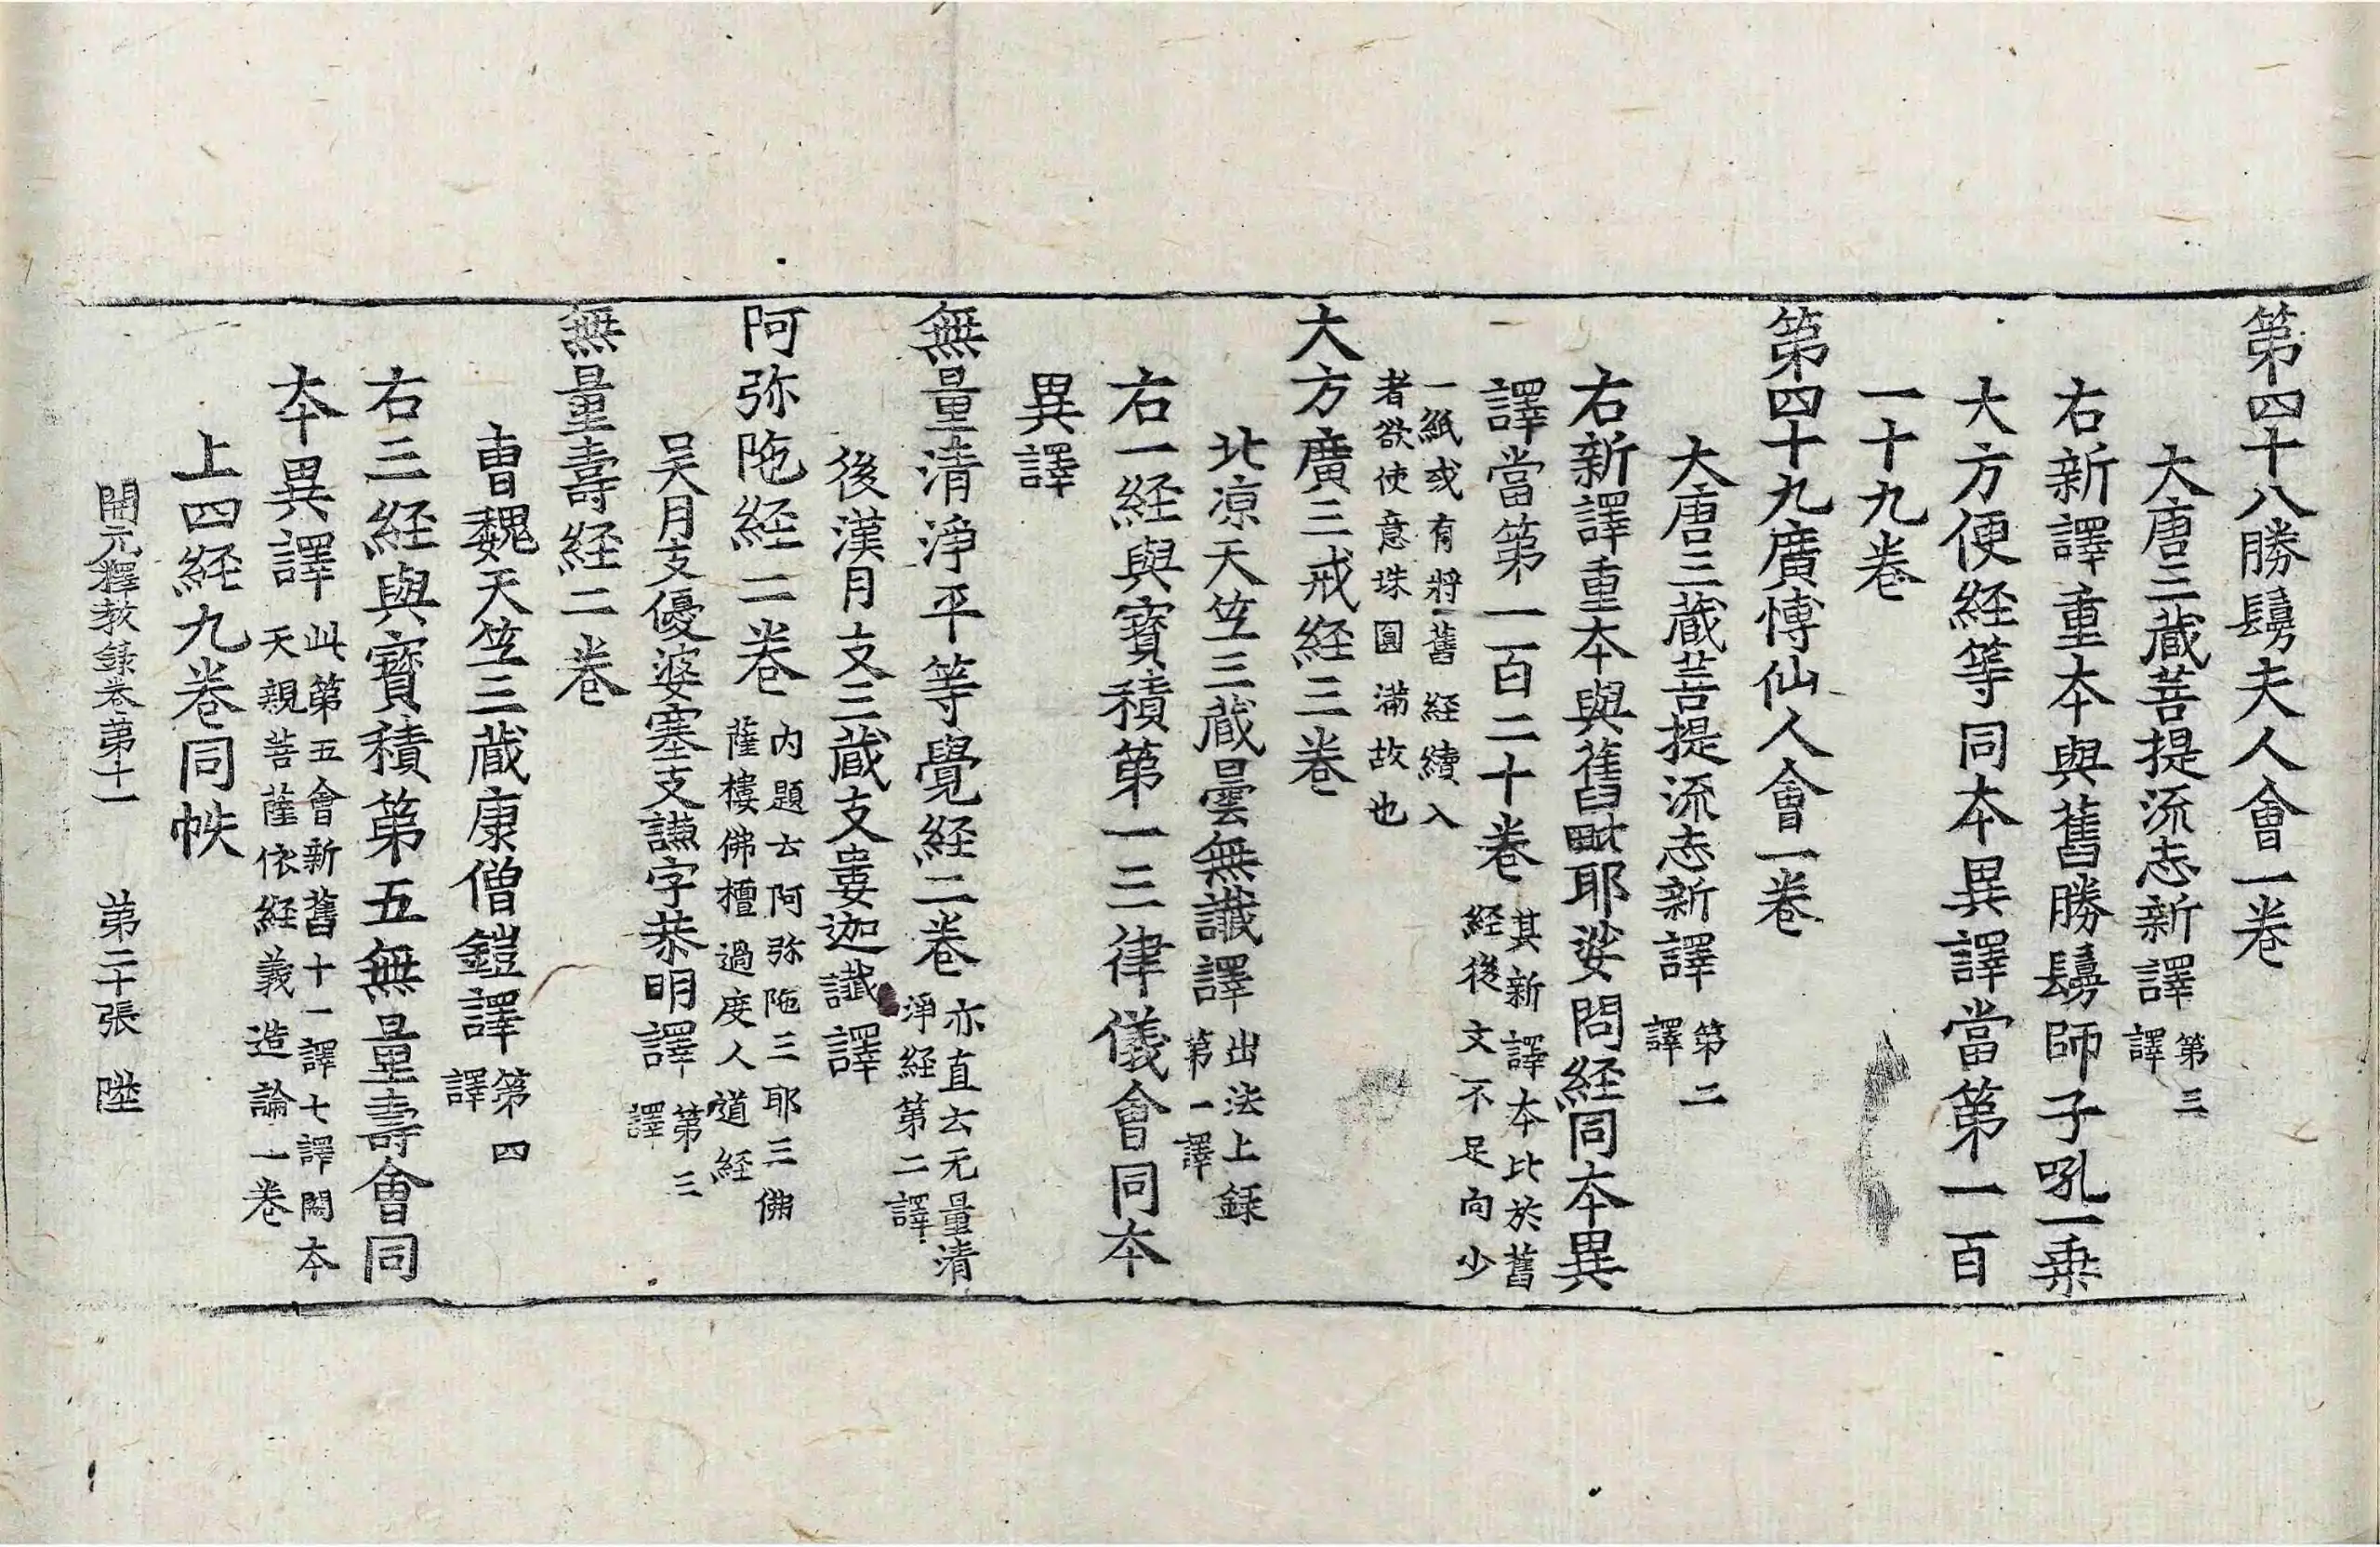 第四十八勝鬘夫人會一卷
大唐三藏菩提流志新譯第三譯
右新譯重本與舊勝鬘師子吼一乗
大方便経等同本異譯當第一百
一十九卷
第四十九廣博仙人會一卷
大唐三藏菩提流志新譯第二譯
右新譯重本與舊毗耶娑問経同本異
譯當第一百二十卷其新譯本比於舊
経後文不足向少
一紙或有將舊経續入
者欲使意珠圓滿故也
大方廣三戒経三卷
北涼天竺三藏曇無讖譯出法上錄
第一譯
右一経與寶積第一三律儀會同本
異譯
無量清淨平等覺経二卷亦直云无量清
淨経第二譯
後漢月支三藏支婁迦讖譯
阿弥陁経二卷內題云阿弥陁三耶三佛
薩樓佛檀過度人道経
吴月支優婆塞支謙字恭明譯第三譯
無量壽経二卷
曹魏天竺三藏康僧鎧譯第四譯
右三経與寶積第五無量壽會同
本異譯此第五會新舊十一譯七譯闕本
天親菩薩依経義造論一卷
上四経九卷同帙
開元釋教錄卷第十一　第二十張　陞